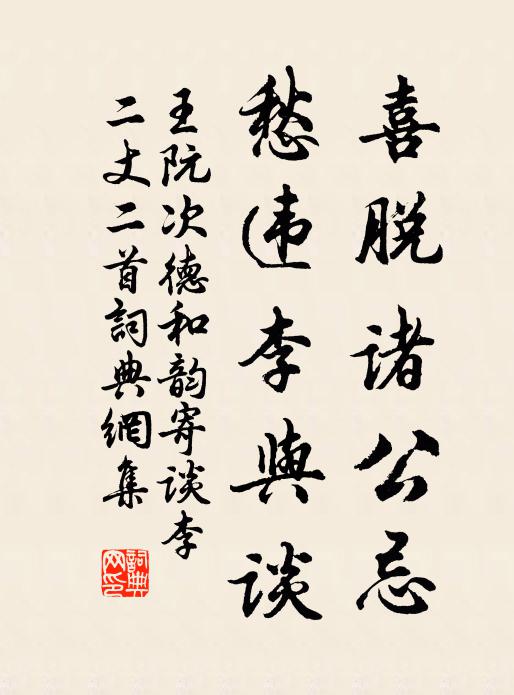 喜脱诸公忌
愁违李與谈
王阮次德和韵寄谈李
二丈二首詞典網集
詞典网印